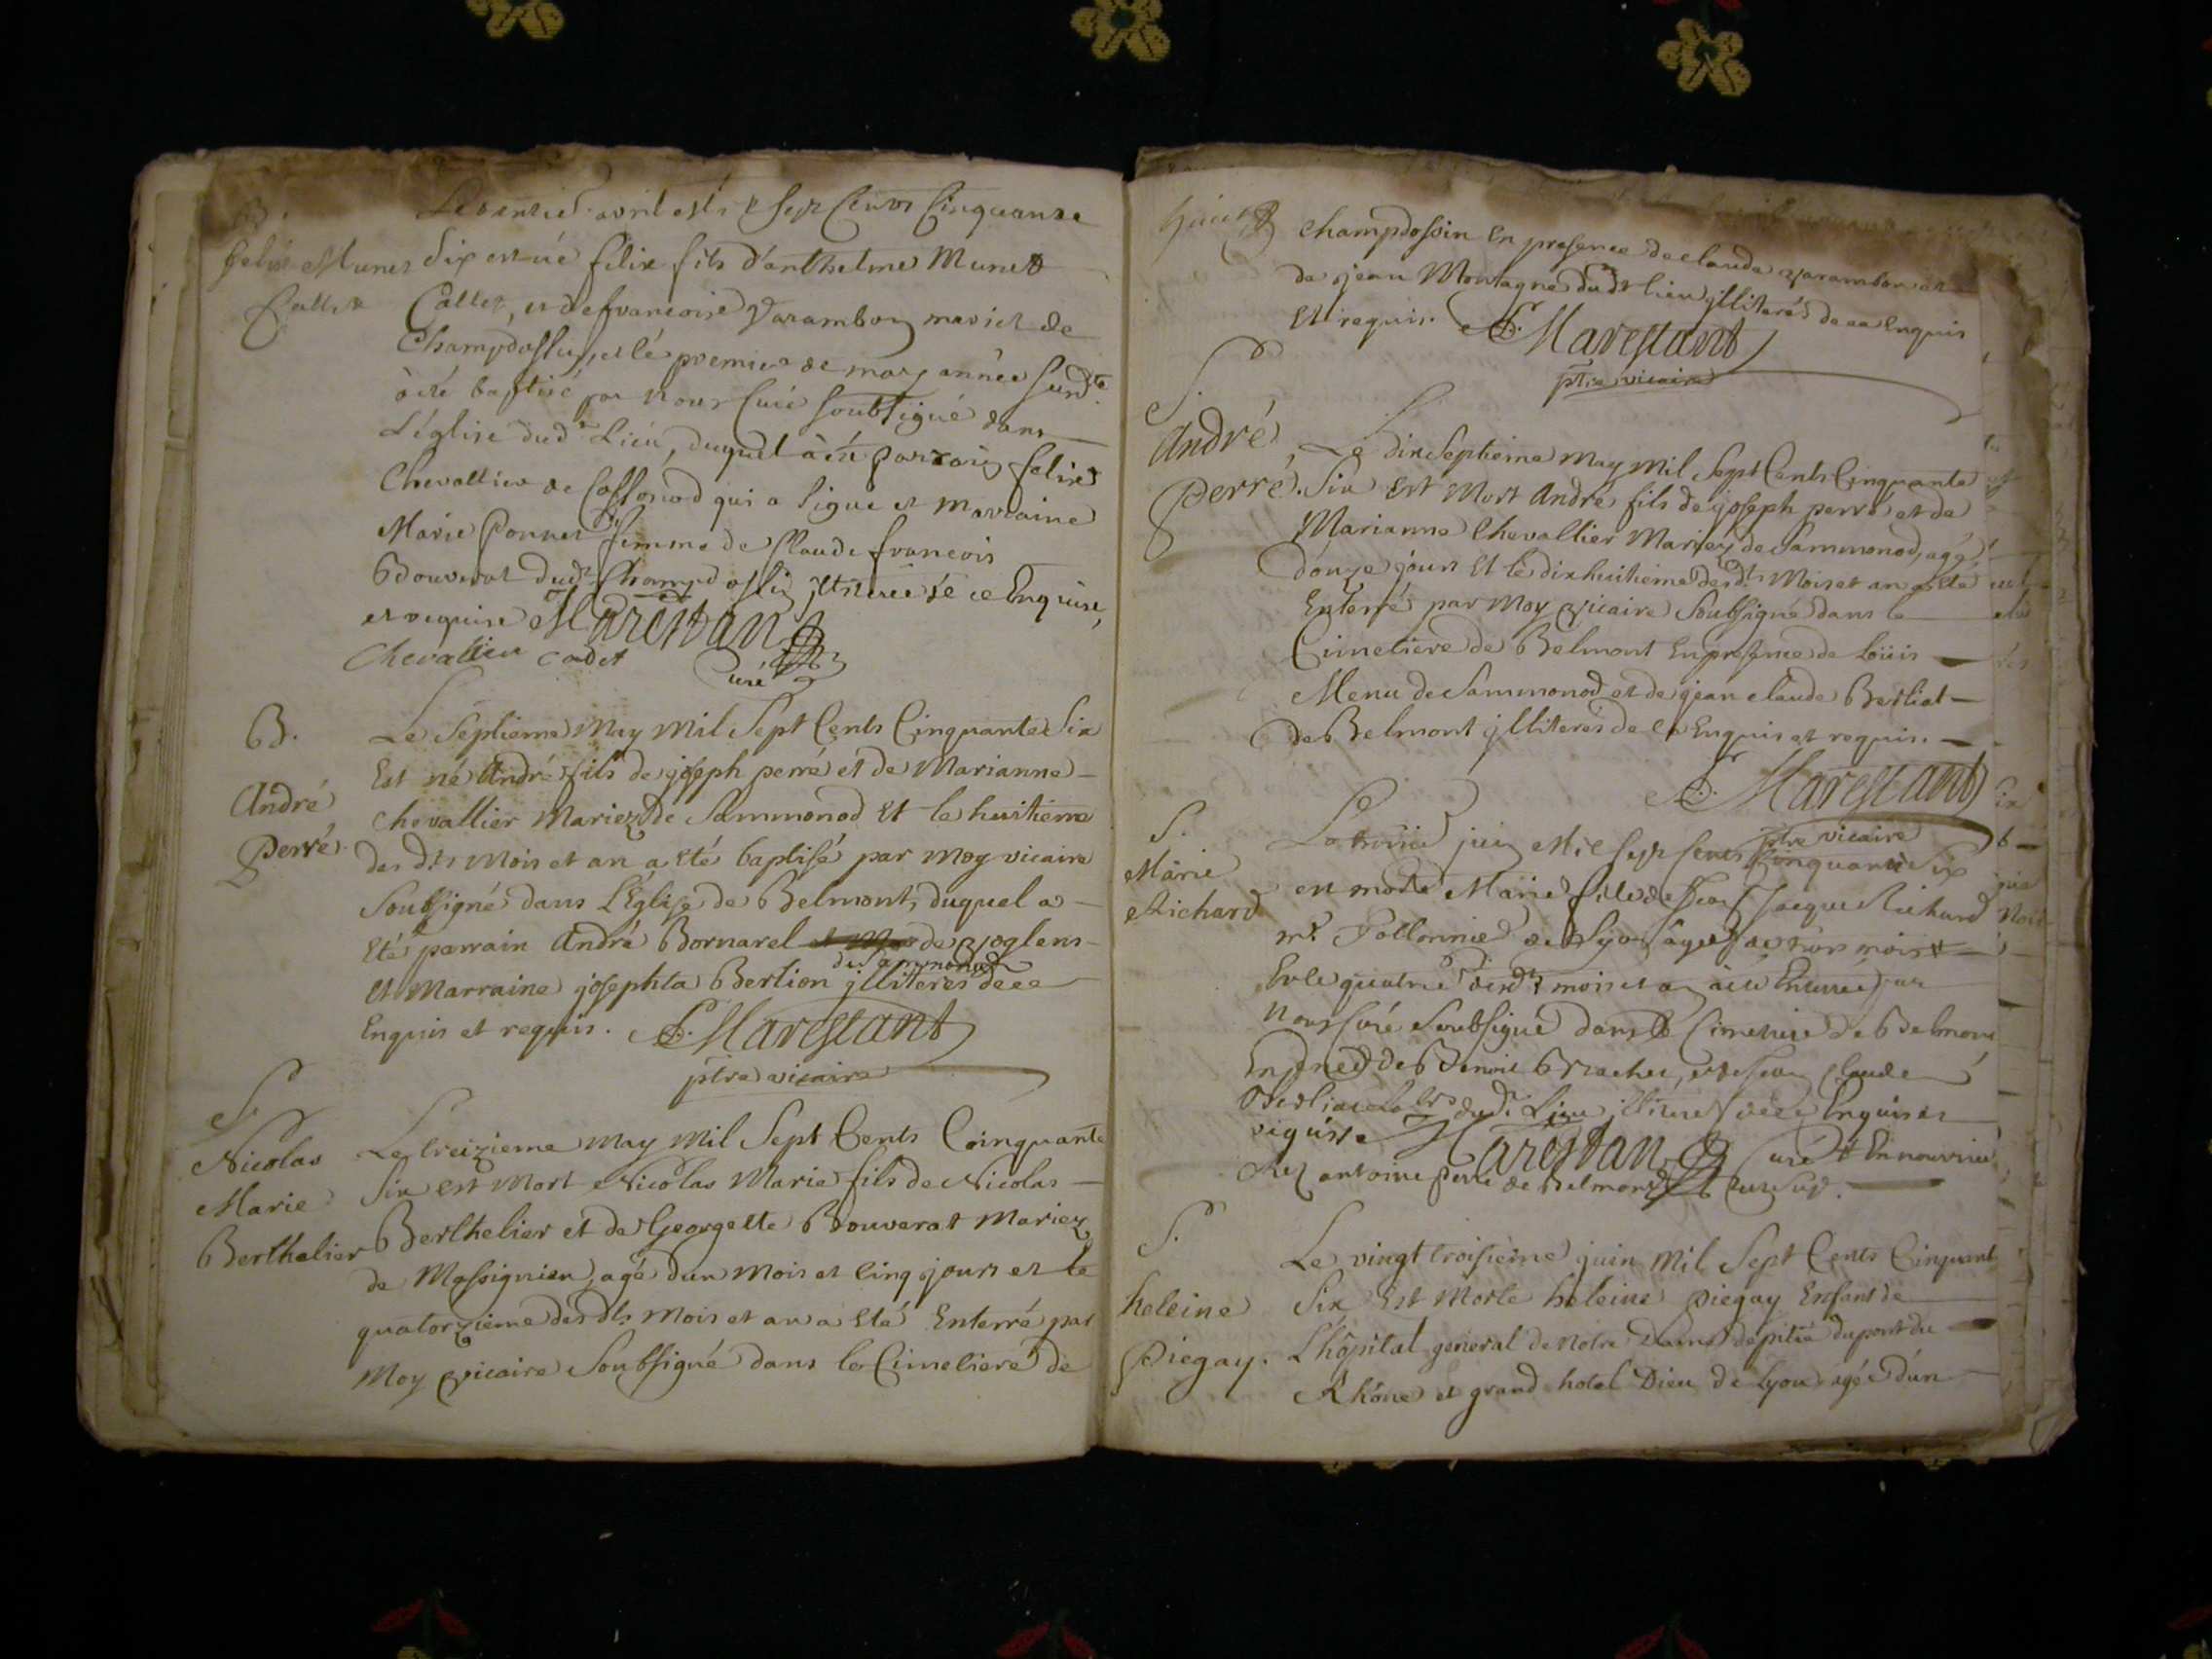 B.
felix Munet
Callet
avril mil Sept Cents Cinquante
Six est né felix fils d'anthelme Munet
Callet, et de francoise Varambon mariez de
Champdossin, et le premier de may année Susd.te
à été baptisé par nous Curé soubsigné dans
L'église dud.t Lieu, duquel à été parrain felix
Chevallier de Cossonod qui a signé et marraine
Marie Ponnet femme de Claude francois
Bouverat dud.t Champdossin illiterée de ce Enquise,
et requise Marestan
Chevallier cadet Curé
B.
André
Perré.
Le Septieme May Mil Sept Cents Cinquante Six
Est né André fils de joseph perré et de Marianne
chevallier Mariez de Sammonod Et le huitième
des d.ts Mois et an a été baptisé par moy vicaire
Soubsigné dans L'Eglise de Belmont, duquel a
Eté parrain André Bornarel de voglens
de Sammonod
Et Marraine josephta Bertion jlliteres de ce
Enquis et requis. Marestant
ptre vicaire
S.
Nicolas
Marie
Berthelier
Le treizieme May Mil Sept Cents Cinquante
Six est Mort Nicolas Marie fils de Nicolas
Berthelier et de Georgette Bouverat Mariez
de Massignieu, agé d'un Mois et cinq jours et le
quatorzieme des d.ts Mois et an a Eté Enterré par
Moy vicaire Soubsigné dans le Cimetiere de
champdossin En presence de claude varambon et
de jean Montagne dud.t lieu jlliterés de ce Enquis
Et requis. Marestant
ptre vicaire
S.
André
Perré.
Le dix Septieme May Mil Sept Cents Cinquante
Six Est Mort André fils de joseph perré et de
Marianne Chevallier Mariez de Sammonod, agé
douze jours Et le dix huitieme des d.ts Mois et an a Eté
Enterré par Moy vicaire Soubsigné dans le
Cimetiere de Belmont En presence de Loüis
Menu de Sammonod et de jean claude Berliat
de Belmont jlliterés de ce Enquis et requis.
Marestant
ptre vicaire
S.
Marie
Richard
Le troisie juin Mil Sept Cents Cinquante Six
est morte Marie fille de Jean Jacque Richard
de Lyon agée de trois mois
Et le quatrie desd.ts mois et an a été Enterrée par
Nous Curé Soubsigné dans le Cimetiere de Belmont
En pnce de Benoit Brachet, et de Jean Claude
Berliat dud.t Lieu illiteres de ce Enquis et
requis Marestan Curé En nourrice
chez antoine perré de Belmont
S.
heleine
Piegay.
Le vingt troisieme juin Mil Sept Cents Cinquant
Six Est Morte heleine Piegay Enfant de
L'hôpital general de Notre Dame de pitié du pont du
Rhône et grand hotel Dieu de Lyon agée d'un